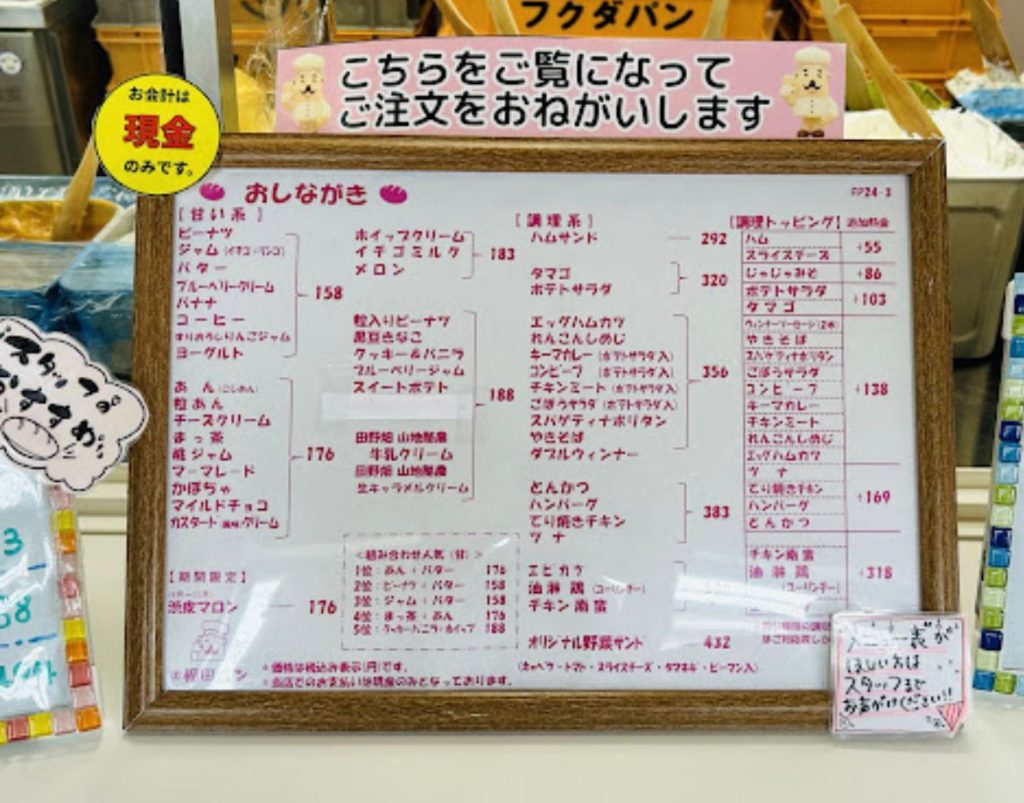 フクダパン
こちらをご覧になって
ご注文をおねがいします
お会計は
現金
のみです。
おしながき
FP24-3
[甘い系]
ピーナツ
ジャム(イチゴ・リンゴ)
バター
ブルーベリークリーム
バナナ
コーヒー
すりおろしりんごジャム
ヨーグルト
158
あん(こしあん)
粒あん
チーズクリーム
まっ茶
桃ジャム
マーマレード
かぼちゃ
マイルドチョコ
カスタード(風味)クリーム
176
【期間限定】
渋皮マロン
176
ホイップクリーム
イチゴミルク
メロン
183
粒入りピーナツ
黒豆きなこ
クッキー&バニラ
ブルーベリージャム
スイートポテト
田野畑 山地酪農
牛乳クリーム
田野畑 山地酪農
生キャラメルクリーム
188
<組み合わせ人気(甘)>
1位:あん+バター 176
2位:ピーナツ+バター 158
3位:ジャム+バター 158
4位:まっ茶+あん 176
5位:クッキーバニラ+ホイップ 188
※価格は税込み表示(円)です。
※当店でのお支払いは現金のみとなっております。
[調理系]
ハムサンド
292
タマゴ
ポテトサラダ
320
エッグハムカツ
れんこんしめじ
キーマカレー(ポテトサラダ入)
コンビーフ(ポテトサラダ入)
チキンミート(ポテトサラダ入)
ごぼうサラダ(ポテトサラダ入)
スパゲティナポリタン
やきそば
ダブルウィンナー
356
とんかつ
ハンバーグ
てり焼きチキン
ツナ
383
エビカツ
油淋鶏(ユーリンチー)
チキン南蛮
オリジナル野菜サンド
432
(キャベツ・トマト・スライスチーズ・タマネギ・ピーマン入)
【調理トッピング】追加料金
ハム
スライスチーズ
+55
じゃじゃみそ
+86
ポテトサラダ
タマゴ
+103
ウィンナーソーセージ(2本)
やきそば
スパゲティナポリタン
ごぼうサラダ
コンビーフ
キーマカレー
チキンミート
れんこんしめじ
エッグハムカツ
+138
ツナ
てり焼きチキン
ハンバーグ
とんかつ
+169
チキン南蛮
油淋鶏
(ユーリンチー)
+318
メニュー表が
ほしい方は
スタッフまで
お声がけください!!
スタッフの
おすすめ